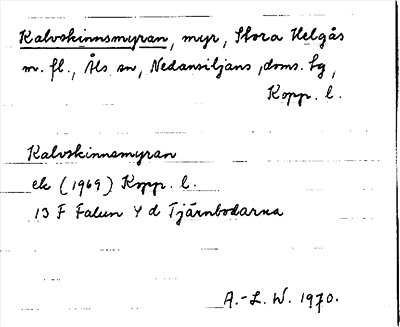 Kalvskinnsmyran, myr, Stora Helgås
m. fl., Åls sn, Nedansiljans doms. sg,
Kopp. l.
Kalvskinnsmyran
ek (1969) Kopp. l.
13 F Falun 4 d Tjärnbodarna
A.-L. W. 1970.